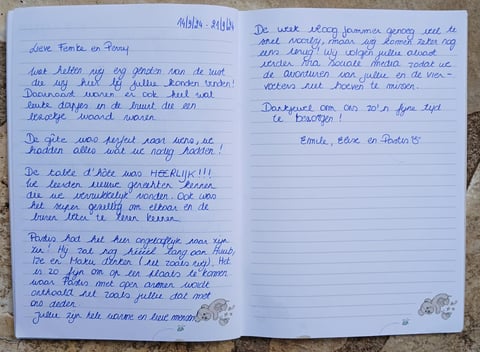 14/9/24 - 21/9/24
Lieve Femke en Perry
Wat hebben wij erg genoten van de rust
die wij hier bij jullie konden vinden!
Daarnaast waren er ook heel wat
leuke dorpjes in de buurt die een
bezoekje waard waren.
De gîte was perfect naar wens, we
hadden alles wat we nodig hadden!
De table d'hôte was HEERLIJK!!!
We leerden nieuwe gerechten kennen
die we verrukkelijk vonden. Ook was
het super gezellig om elkaar en de
buren beter te leren kennen.
Pastis had het hier ongelooflijk naar zijn
zin! Hij zal nog heel lang aan
en denken (net zoals wij). Het
is zo fijn om op een plaats te komen
waar Pastis met open armen wordt
onthaald net zoals jullie dat met
ons deden.
Jullie zijn hele warme en lieve mensen.
De week vloog jammer genoeg veel te
snel voorbij, maar wij komen zeker nog
eens terug! Wij volgen jullie alvast
verder via sociale media zodat we
de avonturen van jullie en de vier-
voeters niet hoeven te missen.
Dankjewel om ons zo'n fijne tijd
te bezorgen!
Emile, en Pastis